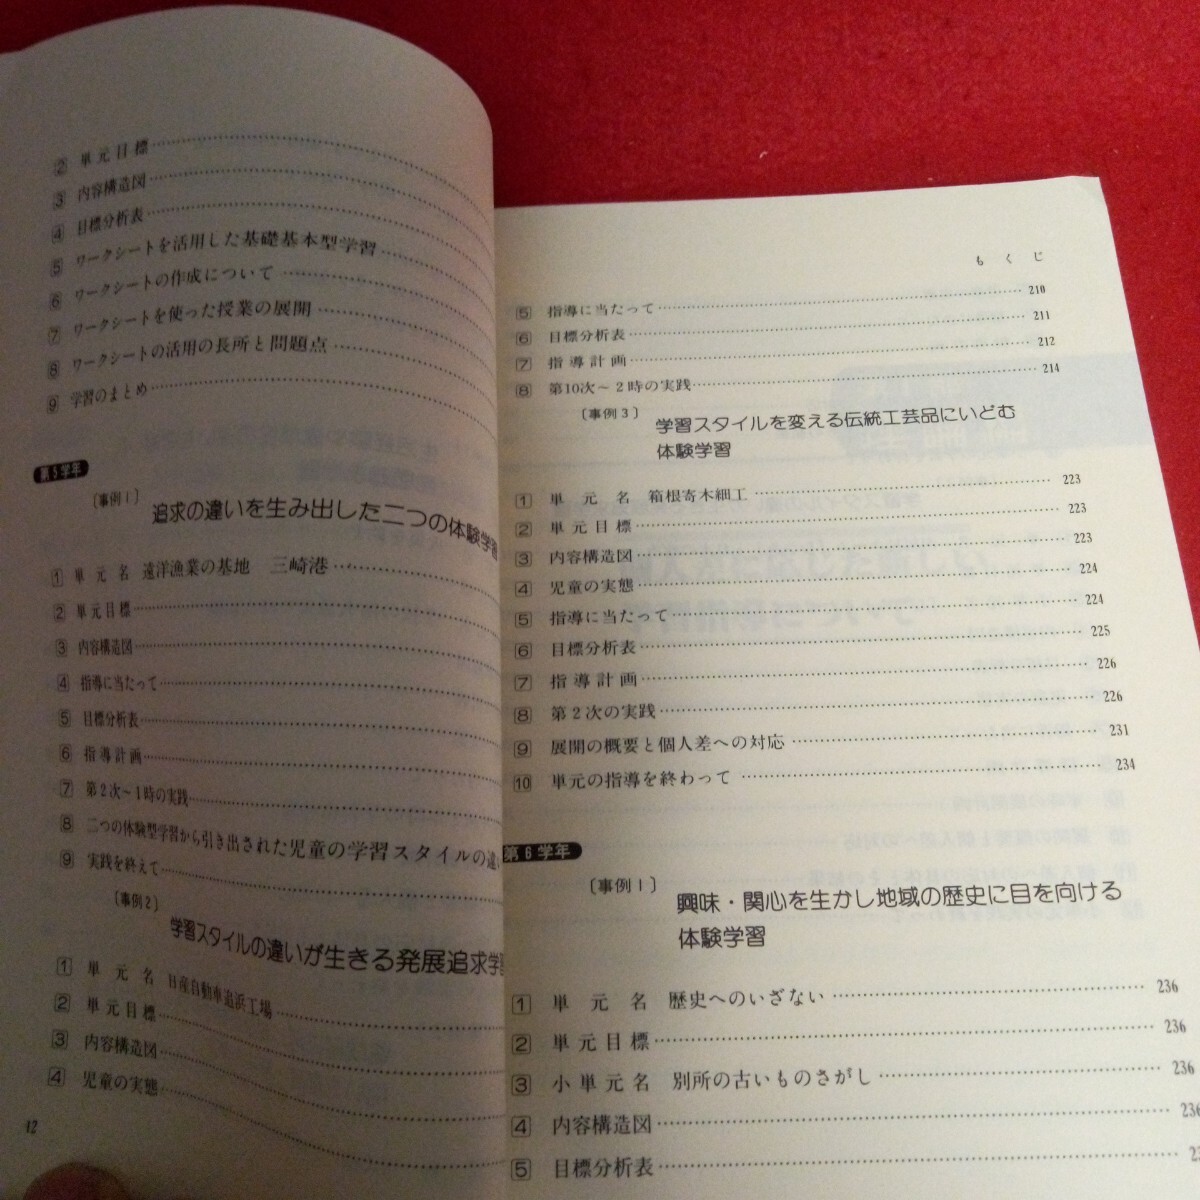 ② 単元目標
③ 内容構造図
④ 目標分析表
⑤ ワークシートを活用した基礎基本型学習
⑥ ワークシートの作成について
⑦ ワークシートを使った授業の展開
⑧ ワークシートの活用の長所と問題点
⑨ 学習のまとめ
第5学年
〔事例1〕
追求の違いを生み出した二つの体験学習
① 単元名 遠洋漁業の基地 三崎港
② 単元目標
③ 内容構造図
④ 指導に当たって
⑤ 目標分析表
⑥ 指導計画
⑦ 第2次～1時の実践
⑧ 二つの体験型学習から引き出された児童の学習スタイルの違い
⑨ 実践を終えて
〔事例2〕
学習スタイルの違いが生きる発展追求学習
① 単元名 日産自動車追浜工場
② 単元目標
③ 内容構造図
④ 児童の実態
12
もくじ
⑤ 指導に当たって 210
⑥ 目標分析表 211
⑦ 指導計画 212
⑧ 第10次～2時の実践 214
〔事例3〕
学習スタイルを変える伝統工芸品にいどむ
体験学習
① 単元名 箱根寄木細工 223
② 単元目標 223
③ 内容構造図 223
④ 児童の実態 224
⑤ 指導に当たって 224
⑥ 目標分析表 225
⑦ 指導計画 226
⑧ 第2次の実践 226
⑨ 展開の概要と個人差への対応 231
⑩ 単元の指導を終わって 234
第6学年
〔事例1〕
興味・関心を生かし地域の歴史に目を向ける
体験学習
① 単元名 歴史へのいざない 236
② 単元目標 236
③ 小単元名 別所の古いものさがし 236
④ 内容構造図 236
⑤ 目標分析表